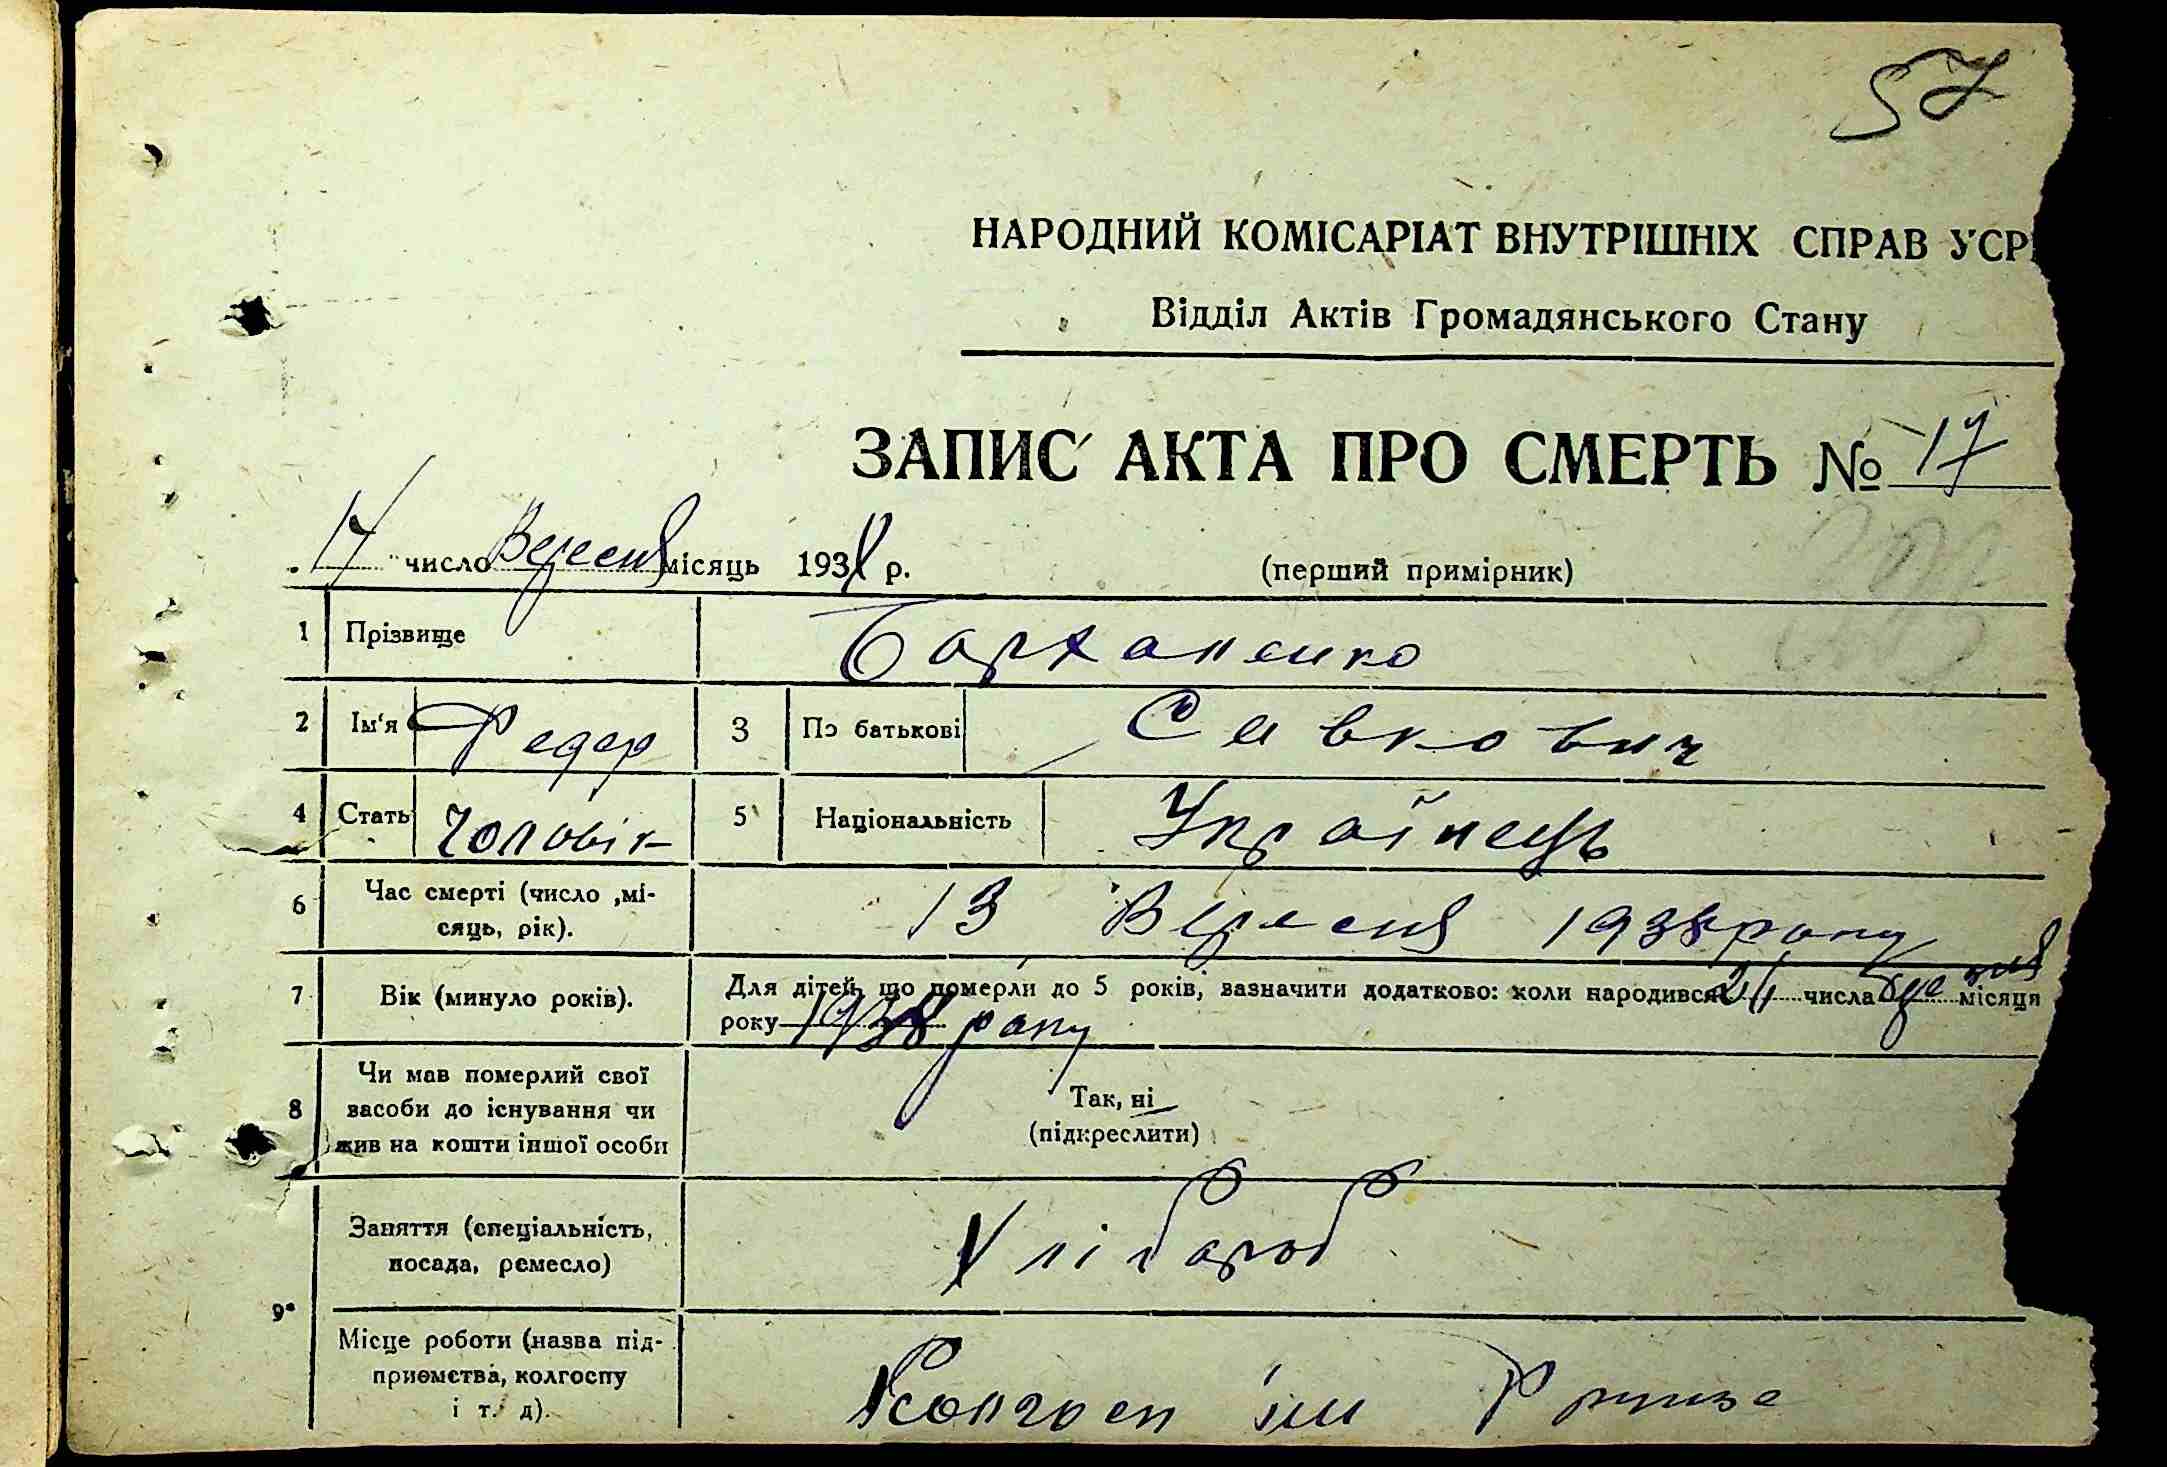 57
НАРОДНИЙ КОМІСАРІАТ ВНУТРІШНІХ СПРАВ УСР
Відділ Актів Громадянського Стану
ЗАПИС АКТА ПРО СМЕРТЬ № 17
17 число Вересня місяць 1938 р. (перший примірник)
1 Прізвище Бархаленко
2 Ім'я Федер 3 По батькові Савкович
4 Стать Чоловік 5 Національність Українець
6 Час смерті (число ,мі-
сяць, рік). 13 Вересня 1938 року
7 Вік (минуло років). Для дітей, що померли до 5 років, зазначити додатково: коли народився числа місяця
року 1938 року
8 Чи мав померлий свої
засоби до існування чи
жив на кошти іншої особи
Так, ні
(підкреслити)
9 Заняття (спеціальність,
посада, ремесло) Хлібороб
Місце роботи (назва під-
приємства, колгоспу
і т. д). Колгосп їм Фрунзе